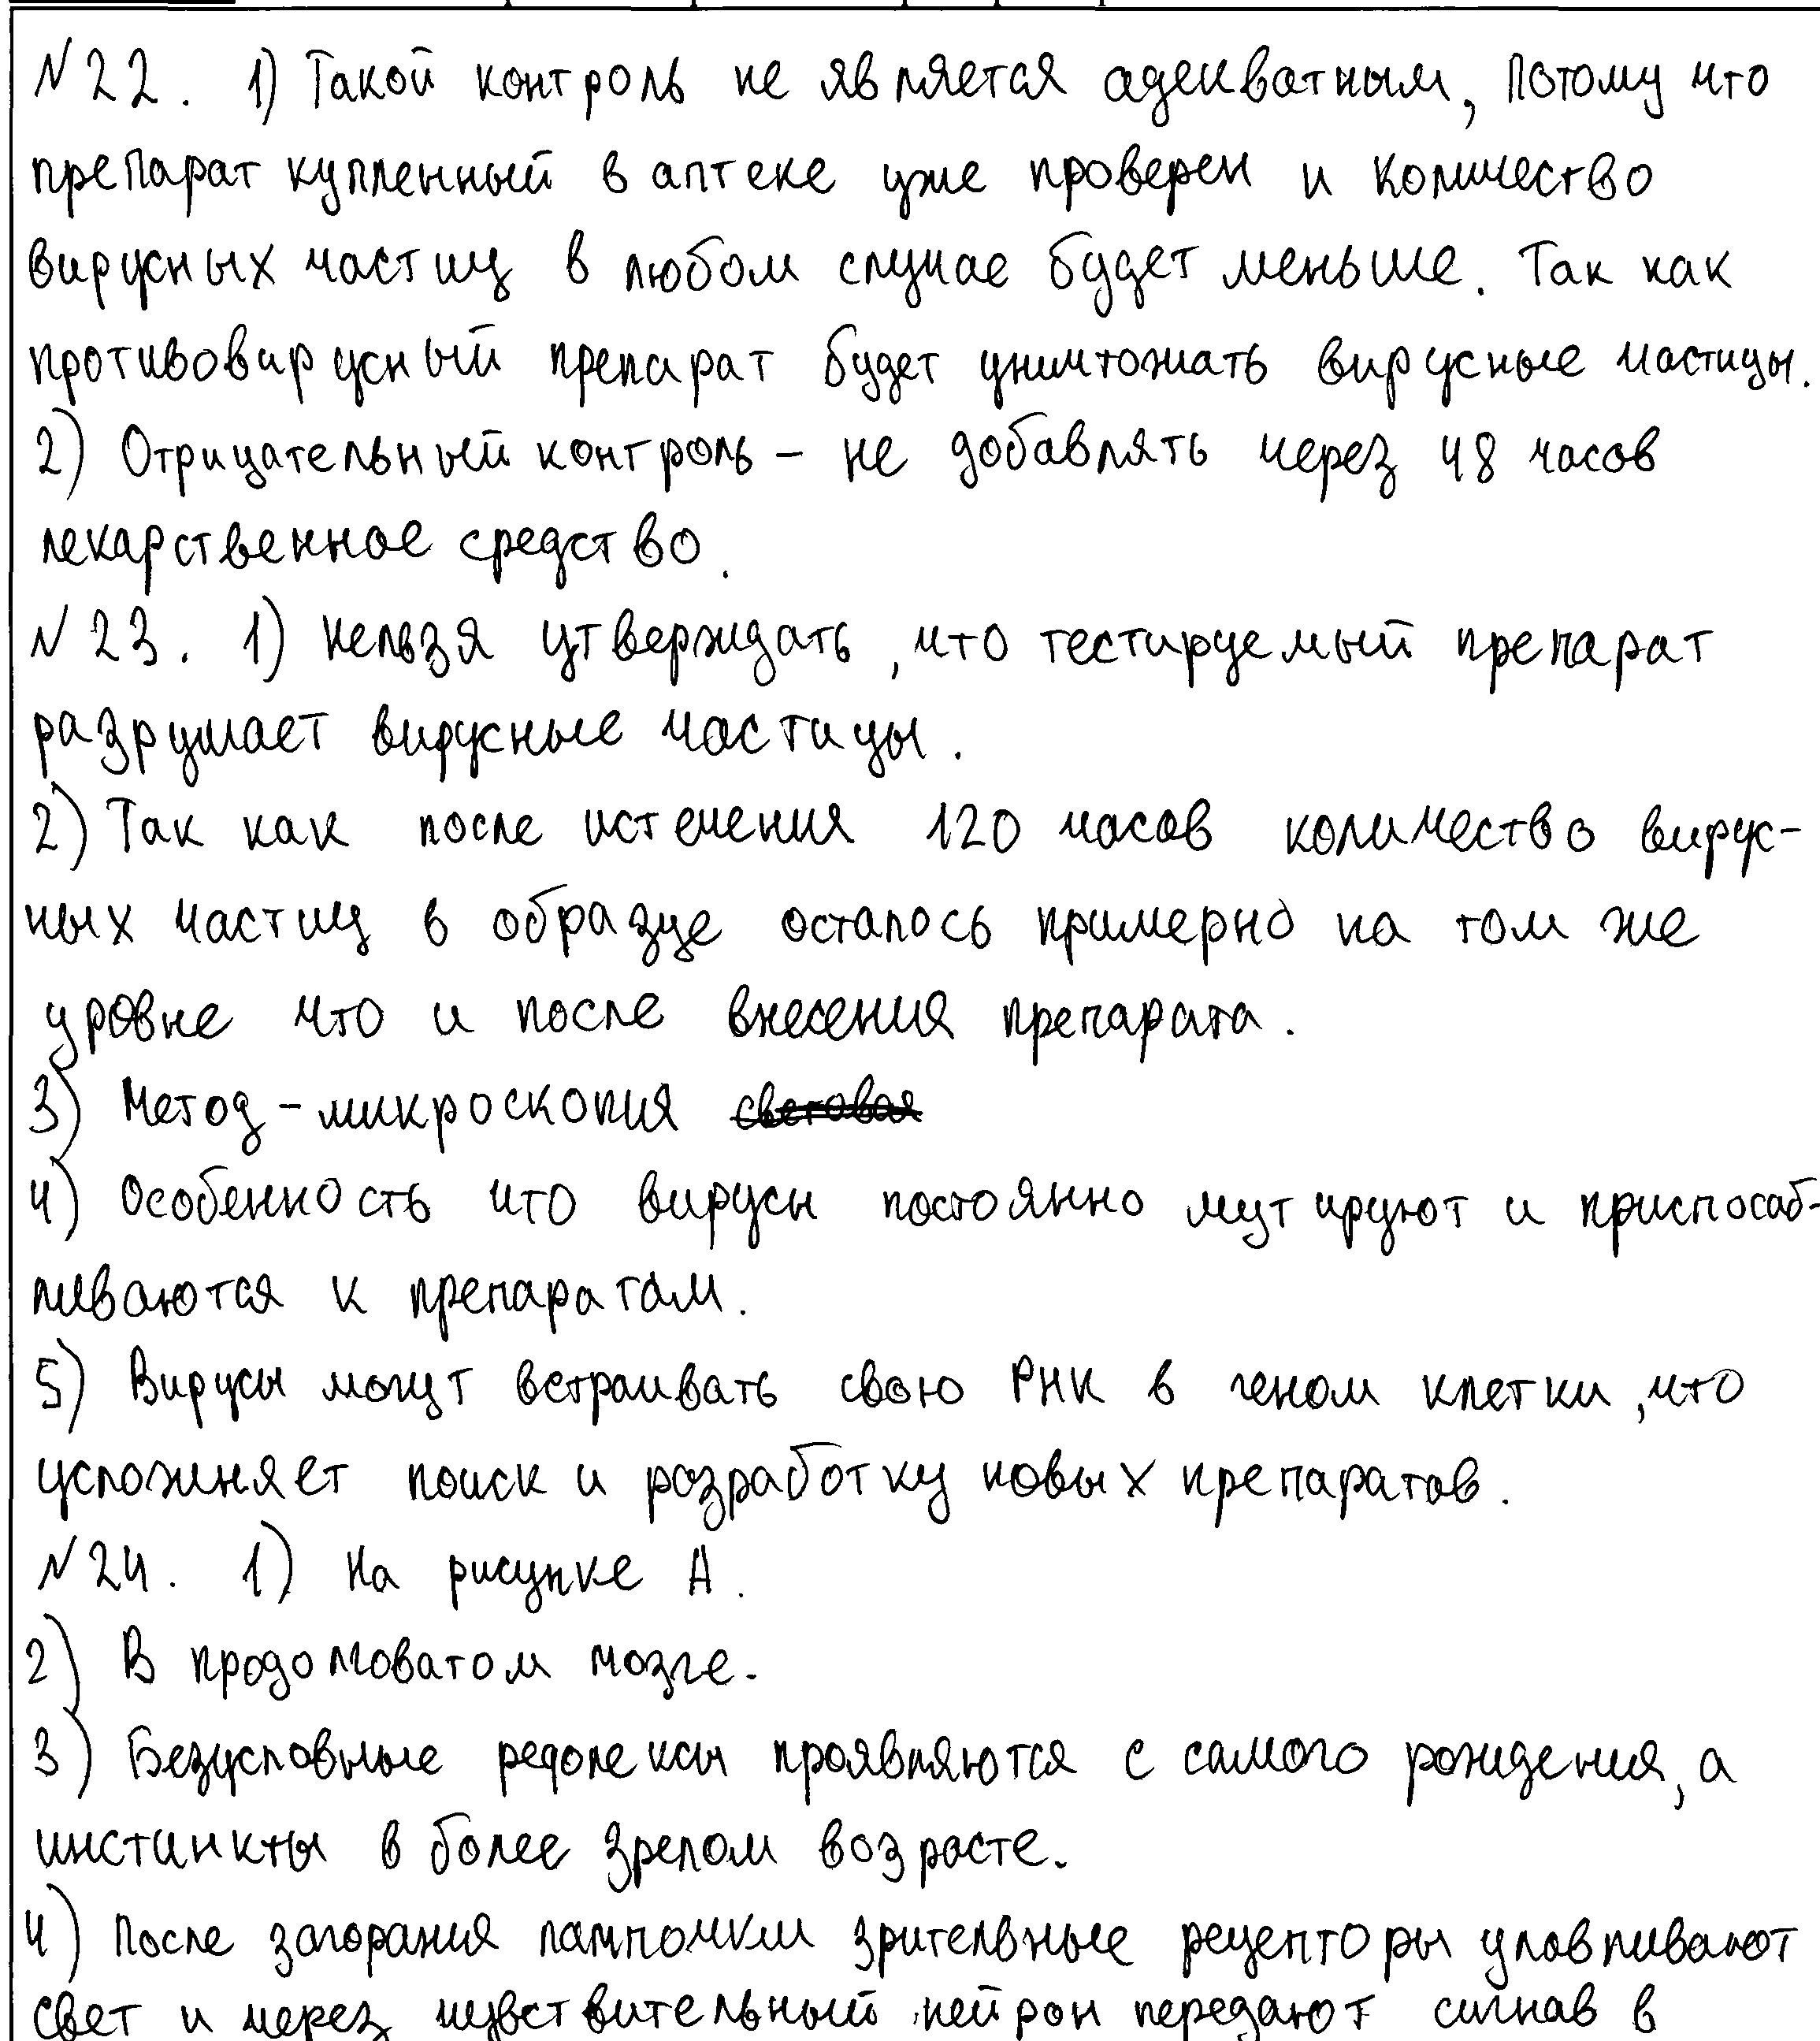 №22. 1) Такой контроль не является адекватным, потому что
препарат купленный в аптеке уже проверен и количество
вирусных частиц в любом случае будет меньше. Так как
противовирусный препарат будет уничтожать вирусные частицы.
2) Отрицательный контроль – не добавлять через 48 часов
лекарственное средство.
№23. 1) Нельзя утверждать, что тестируемый препарат
разрушает вирусные частицы.
2) Так как после истечения 120 часов количество вирус-
ных частиц в образце осталось примерно на том же
уровне что и после внесения препарата.
3) Метод – микроскопия световая
4) Особенность что вирусы постоянно мутируют и приспосаб-
ливаются к препаратам.
5) Вирусы могут встраивать свою РНК в геном клетки, что
усложняет поиск и разработку новых препаратов.
№24. 1) На рисунке А.
2) В продолговатом мозге.
3) Безусловные рефлексы проявляются с самого рождения, а
инстинкты в более зрелом возрасте.
4) После загорания лампочки зрительные рецепторы улавливают
свет и через чувствительный нейрон передают сигнав в